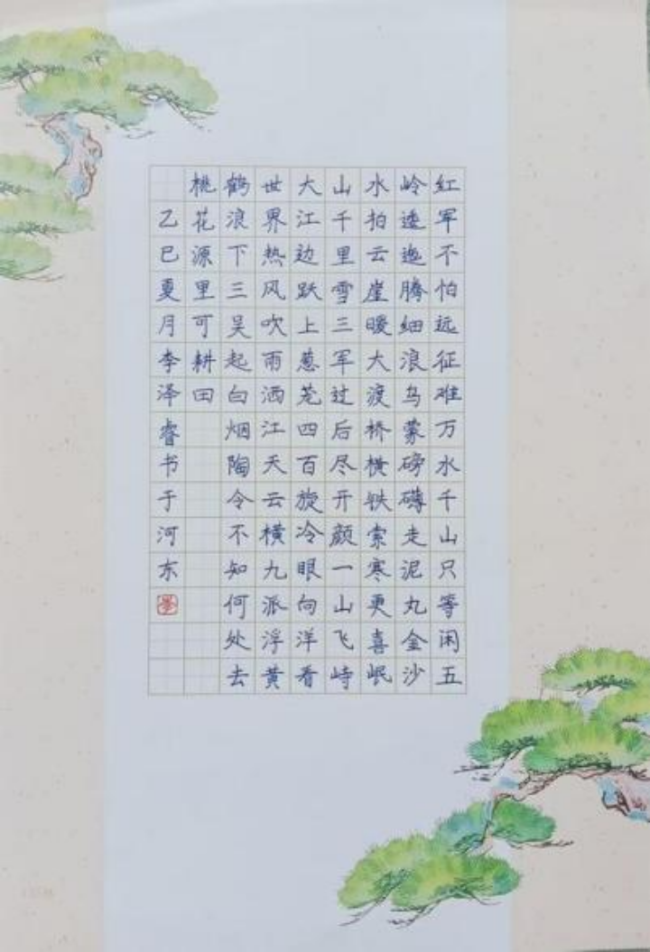 红军不怕远征难万水千山只等闲五
岭逶迤腾细浪乌蒙磅礴走泥丸金沙
水拍云崖暖大渡桥横铁索寒更喜岷
山千里雪三军过后尽开颜一山飞峙
大江边跃上葱茏四百旋冷眼向洋看
世界热风吹雨洒江天云横九派浮黄
鹤浪下三吴起白烟陶令不知何处去
桃花源里可耕田
乙巳夏月李泽睿书于河东